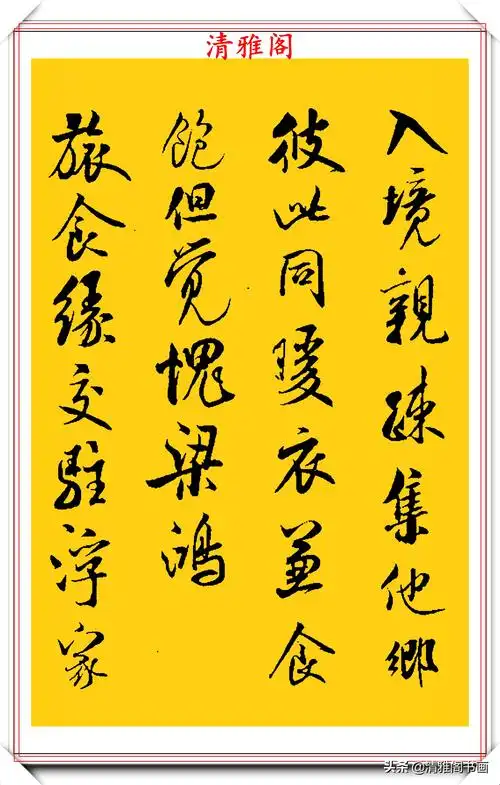 清雅阁
入境親疎集他鄉
彼此同暖衣兼食
飽但觉愧梁鴻
旅食緣交駐浮家
头条 @清雅阁书画